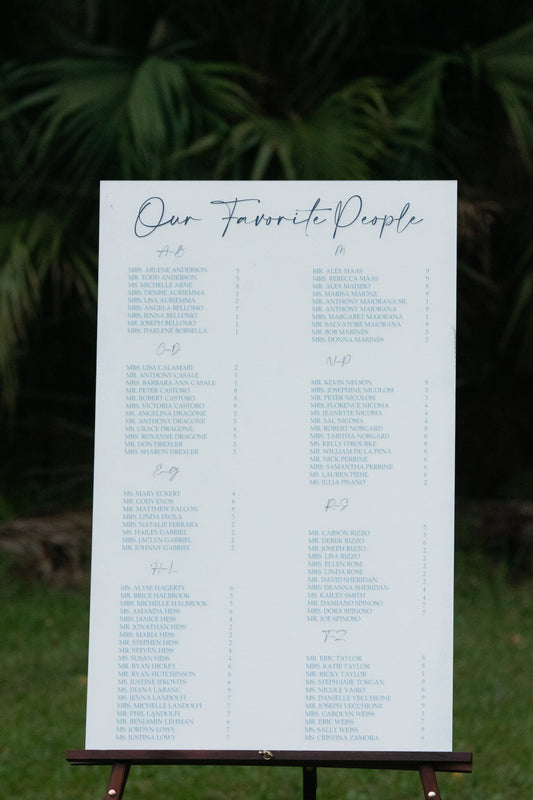 Our Favorite People
A-B
MRS. ARLENE ANDERSON 5
MR. TODD ANDERSON 5
MS. MICHELLE ARNE 8
MRS. DENISE AURIEMMA 1
MRS. LISA AURIEMMA 7
MRS. ANGELA BELLOMO 7
MRS. JENNA BELLOMO 7
MR. JOSEPH BELLOMO 1
MRS. DARLENE BORSELLA 1
C-D
MRS. LISA CALAMARI 2
MR. ANTHONY CASALE 1
MRS. BARBARA ANN CASALE 1
MR. PETER CASTORO 8
MR. ROBERT CASTORO 8
MRS. VICTORIA CASTORO 4
MS. ANGELINA DRAGONE 3
MR. ANTHONY DRAGONE 3
MS. GRACE DRAGONE 3
MRS. ROXANNE DRAGONE 5
MR. DON DREXLER 3
MRS. SHARON DREXLER 3
E-G
MS. MARY ECKERT 4
MR. CODY ENOS 6
MR. MATTHEW FALCON 8
MRS. LINDA FEOLA 3
MRS. NATALIE FERRARA 2
MS. HAILEY GABRIEL 2
MRS. JACLYN GABRIEL 2
MR. JOHNNY GABRIEL 2
H-L
MS. ALYSE HAGERTY 6
MR. BRICE HALBROOK 5
MRS. MICHELLE HALBROOK 5
MS. AMANDA HESS 6
MRS. JANICE HESS 4
MR. JONATHAN HESS 2
MRS. MARIA HESS 2
MR. STEPHEN HESS 2
MR. STEVEN HESS 4
MS. SUSAN HESS 4
MR. RYAN HICKEY 6
MR. RYAN HUTCHINSON 6
MS. JUSTINE
MS. DIANA LABANC 9
MS. JENNA LANDOLFI 7
MRS. MICHELLE LANDOLFI 7
MR. PHIL LANDOLFI 7
MR. BENJAMIN LEHMAN 6
MS. JORDYN LOWY 7
MS. JUSTINA LOWY 7
M
MR. ALEX MAAS 9
MRS. REBECCA MAAS 9
MR. ALEX MADZIO 8
MS. MARISA MAIONE 9
MR. ANTHONY MAIORANA SR. 1
MR. ANTHONY MAIORANA 9
MRS. MARGARET MAIORANA 1
MR. SALVATORE MAIORANA 9
MR. BOB MARINES 5
MRS. DONNA MARINES 5
N-P
MR. KEVIN NELSON 9
MRS. JOSEPHINE NICOLOSI 3
MR. PETER NICOLOSI 3
MRS. FLORENCE NICOSIA 4
MS. JEANETTE NICOSIA 4
MR. SAL NICOSIA 4
MR. ROBERT NORGARD 8
MRS. TABITHA NORGARD 8
MS. KELLY O'ROURKE 8
MR. WILLIAM DE LA PENA 8
MR. NICK PERRINE 6
MRS. SAMANTHA PERRINE 6
MS. LAUREN PIEHL 6
MS. JULIA PISANO 2
R-S
5
MR. CARSON RIZZO 5
MR. DEREK RIZZO 6
MR. JOSEPH RIZZO 2
MRS. LISA RIZZO 2
MRS. ELLEN ROSE 2
MRS. LINDA ROSE 2
MR. DAVID SHERIDAN 2
MRS. DEANNA SHERIDAN 4
MS. KAILEY SMITH 4
MR. DAMIANO SPINOSO 7
MRS. DORA SPINOSO 7
MR. JOE SPINOSO
T-Z
MR. ERIC TAYLOR 8
MRS. KATIE TAYLOR 8
MR. RICKY TAYLOR 1
MS. STEPHANIE TORGAN 9
MS. NICOLE VAIRO 6
MS. DANIELLE VECCHIONE 9
MR. JOSEPH VECCHIONE 9
MRS. CAROLYN WEISS 1
MR. ERIC WEISS 7
MS. SALLY WEISS 9
MS. CRISTINA ZAMORA 6